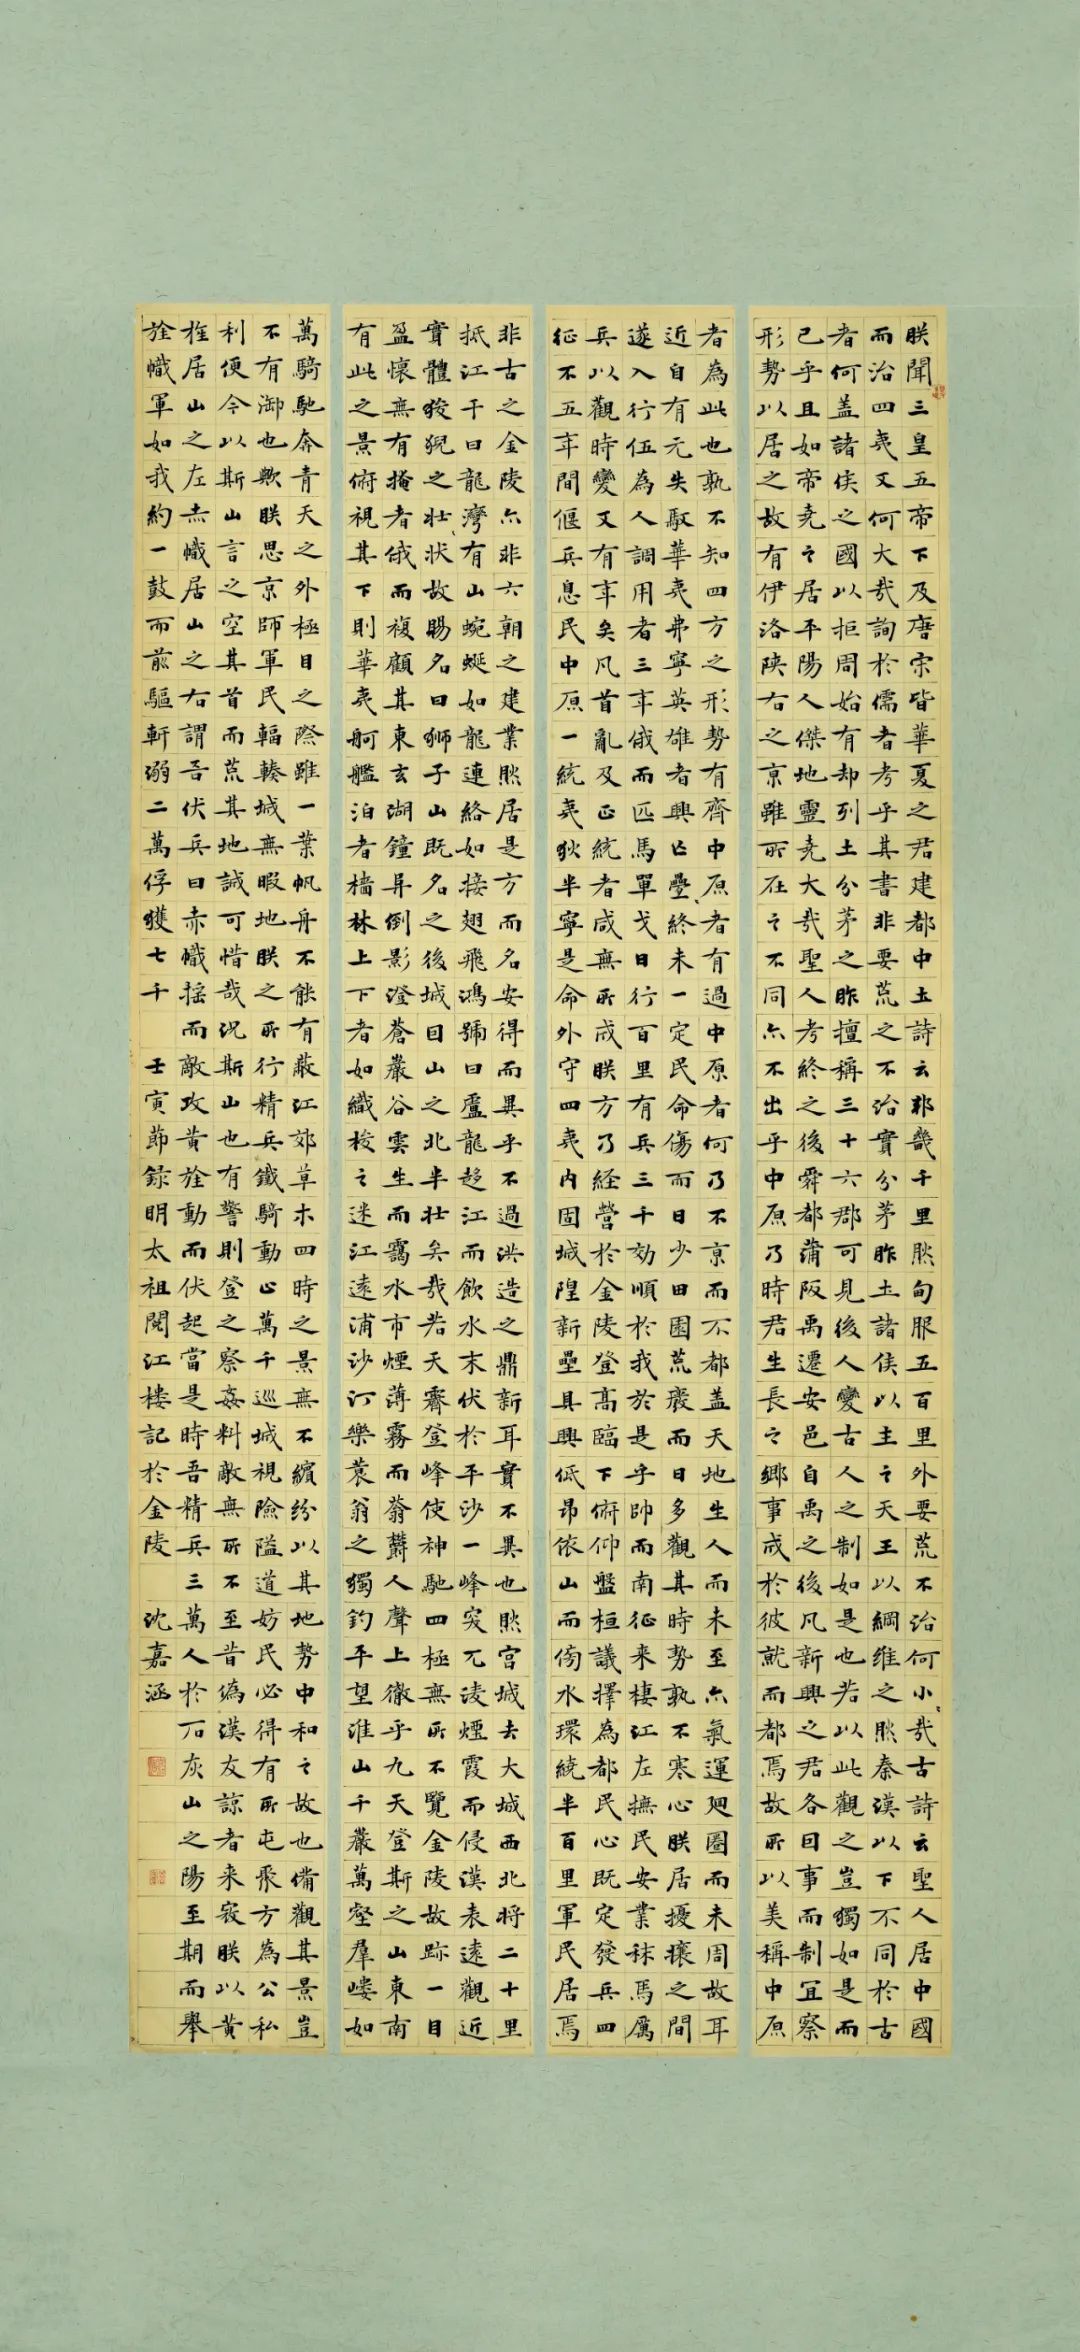 朕聞三皇五帝下及唐宋皆華夏之君建都中土詩云邦畿千里然甸服五百里外要荒不治何小哉古詩云聖人居中國
而治四夷又何大哉詢於儒者考乎其書非要荒之不治實分茅胙土諸侯以主之天王以綱維之然秦漢以下不同於古
者何盖諸侯之國以拒周始有却列土分茅之胙擅稱三十六郡可見後人變古人之制如是也若以此觀之豈獨如是而
已乎且如帝堯之居平陽人傑地靈堯大哉聖人考終之後舜都蒲阪禹遷安邑自禹之後凡新興之君各因事而制宜察
形勢以居之故有伊洛陝右之京雖所在之不同亦不出乎中原乃時君生長之鄉事成於彼就而都焉故所以美稱中原
者為此也孰不知四方之形勢有齊中原者有過中原者何乃不京而不都盖天地生人而未至亦氣運廻圈而未周故耳
近自有元失馭華夷弗寧英雄者興亡疊終未一定民命傷而日少田園荒廢而日多觀其時勢孰不寒心朕居擾攘之間
遂入行伍為人調用者三年俄而匹馬單戈日行百里有兵三千効順於我於是乎帥而南征来棲江左撫民安業秣馬厲
兵以觀時變又有年矣凡首亂及正統者咸無所成朕方乃経營於金陵登高臨下俯仰盤桓議擇為都民心既定發兵四
征不五年間偃兵息民中原一統夷狄半寧是命外守四夷内固城隍新壘具興低昂依山而傍水環繞半百里軍民居焉
非古之金陵亦非六朝之建業然居是方而名安得而異乎不過洪造之鼎新耳實不異也然宮城去大城西北將二十里
抵江干曰龍灣有山蜿蜒如龍連絡如接翅飛鴻號曰盧龍趂江而飲水末伏於平沙一峰突兀淩煙霞而侵漢表遠觀近
實體狻猊之壯狀故賜名曰獅子山既名之後城因山之北半壯矣哉若天霽登峰使神馳四極無所不覽金陵故跡一目
盈懷無有掩者俄而複顧其東玄湖鐘阜倒影澄蒼巖谷雲生而靄水市煙薄霧而蓊欝人聲上徹乎九天登斯之山東南
有此之景俯視其下則華夷舸艦泊者檣林上下者如織梭之迷江遠浦沙汀樂蓑翁之獨釣平望淮山千巖萬壑羣嶁如
萬騎馳奔青天之外極目之際雖一葉帆舟不能有蔽江郊草木四時之景無不繽紛以其地勢中和之故也備觀其景豈
不有御也歟朕思京師軍民輻輳城無暇地朕之所行精兵鐵騎動止萬千巡城視險隘道妨民必得有所屯聚方為公私
利便今以斯山言之空其首而荒其地誠可惜哉況斯山也有警則登之察姦料敵無所不至昔偽漢友諒者来寇朕以黄
旌居山之左赤幟居山之右謂吾伏兵曰赤幟搖而敵攻黄旌動而伏起當是時吾精兵三萬人於石灰山之陽至期而舉
旌幟軍如我約一鼓而前驅斬溺二萬俘獲七千 壬寅節録明太祖閱江楼記於金陵 沈嘉涵